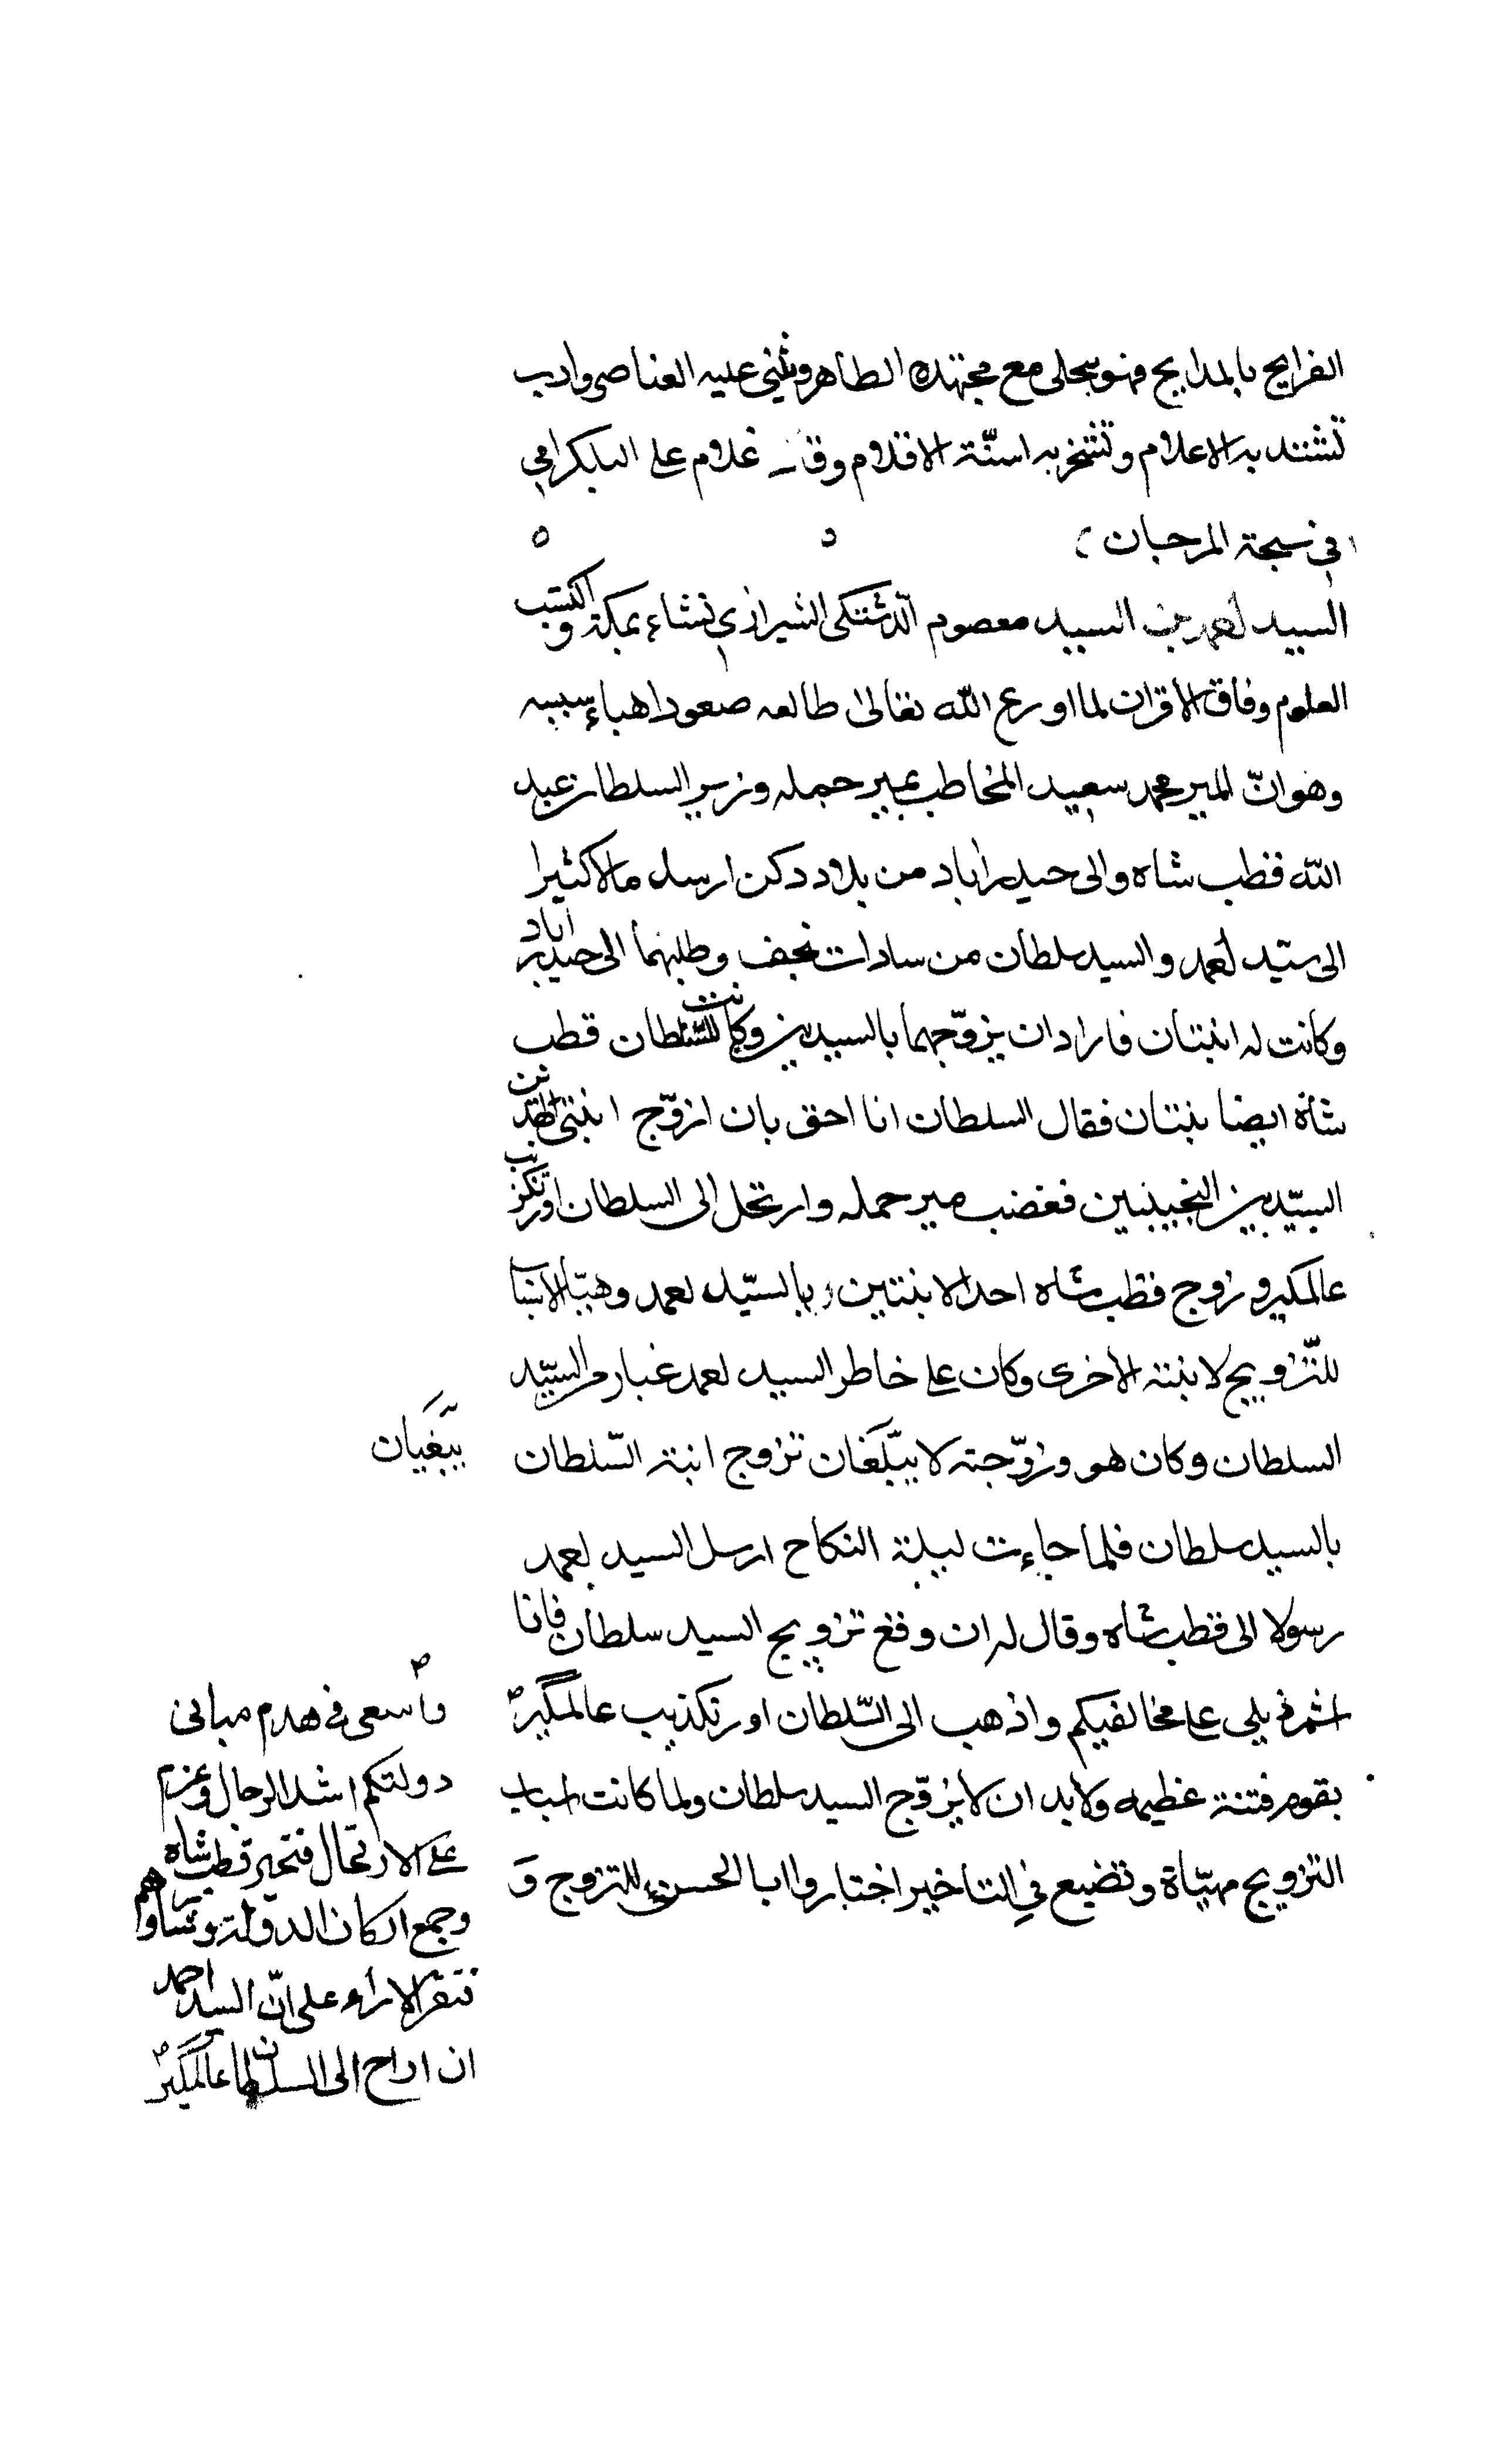 القرايح بالمدايح فهو سجلى مع مجتهده الطاهر ويثني عليه العناصر وادب
تشتد به الاعلام وتفتخر به اسنّة الاقلام وقال غلام على البلكرامي
في سبحة المرجان
السيد احمد بن السيد معصوم الدشتكى الشيرازي نشاء بمكة واكتسب
العلوم وفاق الاقران لما اودع الله تعالى طالعه صعودا هياء سببه
وهو انّ المير محمد سعيد المخاطب بمير جمله وزير السلطان عبد
الله قطب شاه والى حيدراباد من بلاد دكن ارسل مالا كثيرا
الى سيّد احمد والسيد سلطان من سادات نجف وطلبهما الى حيدراباد
وكانت له ابنتان فاراد ان يزوّجهما بالسيدين وكانت للسلطان قطب
شاه ايضا بنتان فقال السلطان انا احق بان ازوّج ابنتى لهذين
السيّدين النجيبين فغضب مير جمله وارتحل الى السلطان اورنكزيب
عالمكير وزوج قطب شاه احد الابنتين بالسيّد احمد وهيّا الاسباب
للتّزويج لابنته الاخرى وكان على خاطر السيد احمد غبار من السيّد
السلطان وكان هو وزوّجته لا يبّلغان تزوج ابنة السّلطان
يبغيان
بالسيد سلطان فلما جاءت ليلة النكاح ارسل السيد احمد
رسولا الى قطب شاه وقال له ان وقع تزويج السيد سلطان فانا
اشمر ذيلى على مخالفيكم واذهب الى السّلطان اورنكزيب عالمگير
يقوم فتنة عظيمه ولابد ان لا يزوّج السيد سلطان ولما كانت اسباب
التزويج مهيّاة وتضيع في التاخير اختاروا ابا الحسن للتزوج وَ
واسعى فى هدم مبانى
دولتكم اشد الرجال وعزم
على الارتحال فتحير قطب شاه
وجمع اركان الدولة وشاورهم
فتقرر الاراء على انّ السيد احمد
ان اراح الى السلطان عالمگير